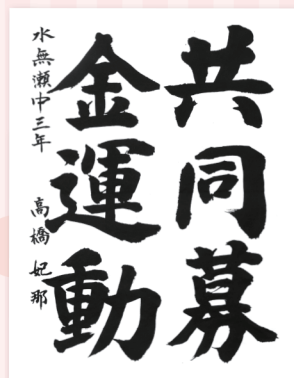 共同募
金運動
水無瀬中三年 高橋妃那